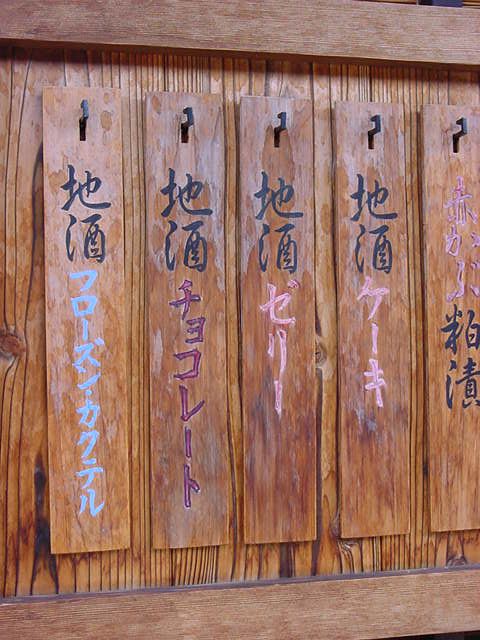 赤かぶ粕漬
地酒ケーキ
地酒ゼリー
地酒チョコレート
地酒フローズン・カクテル